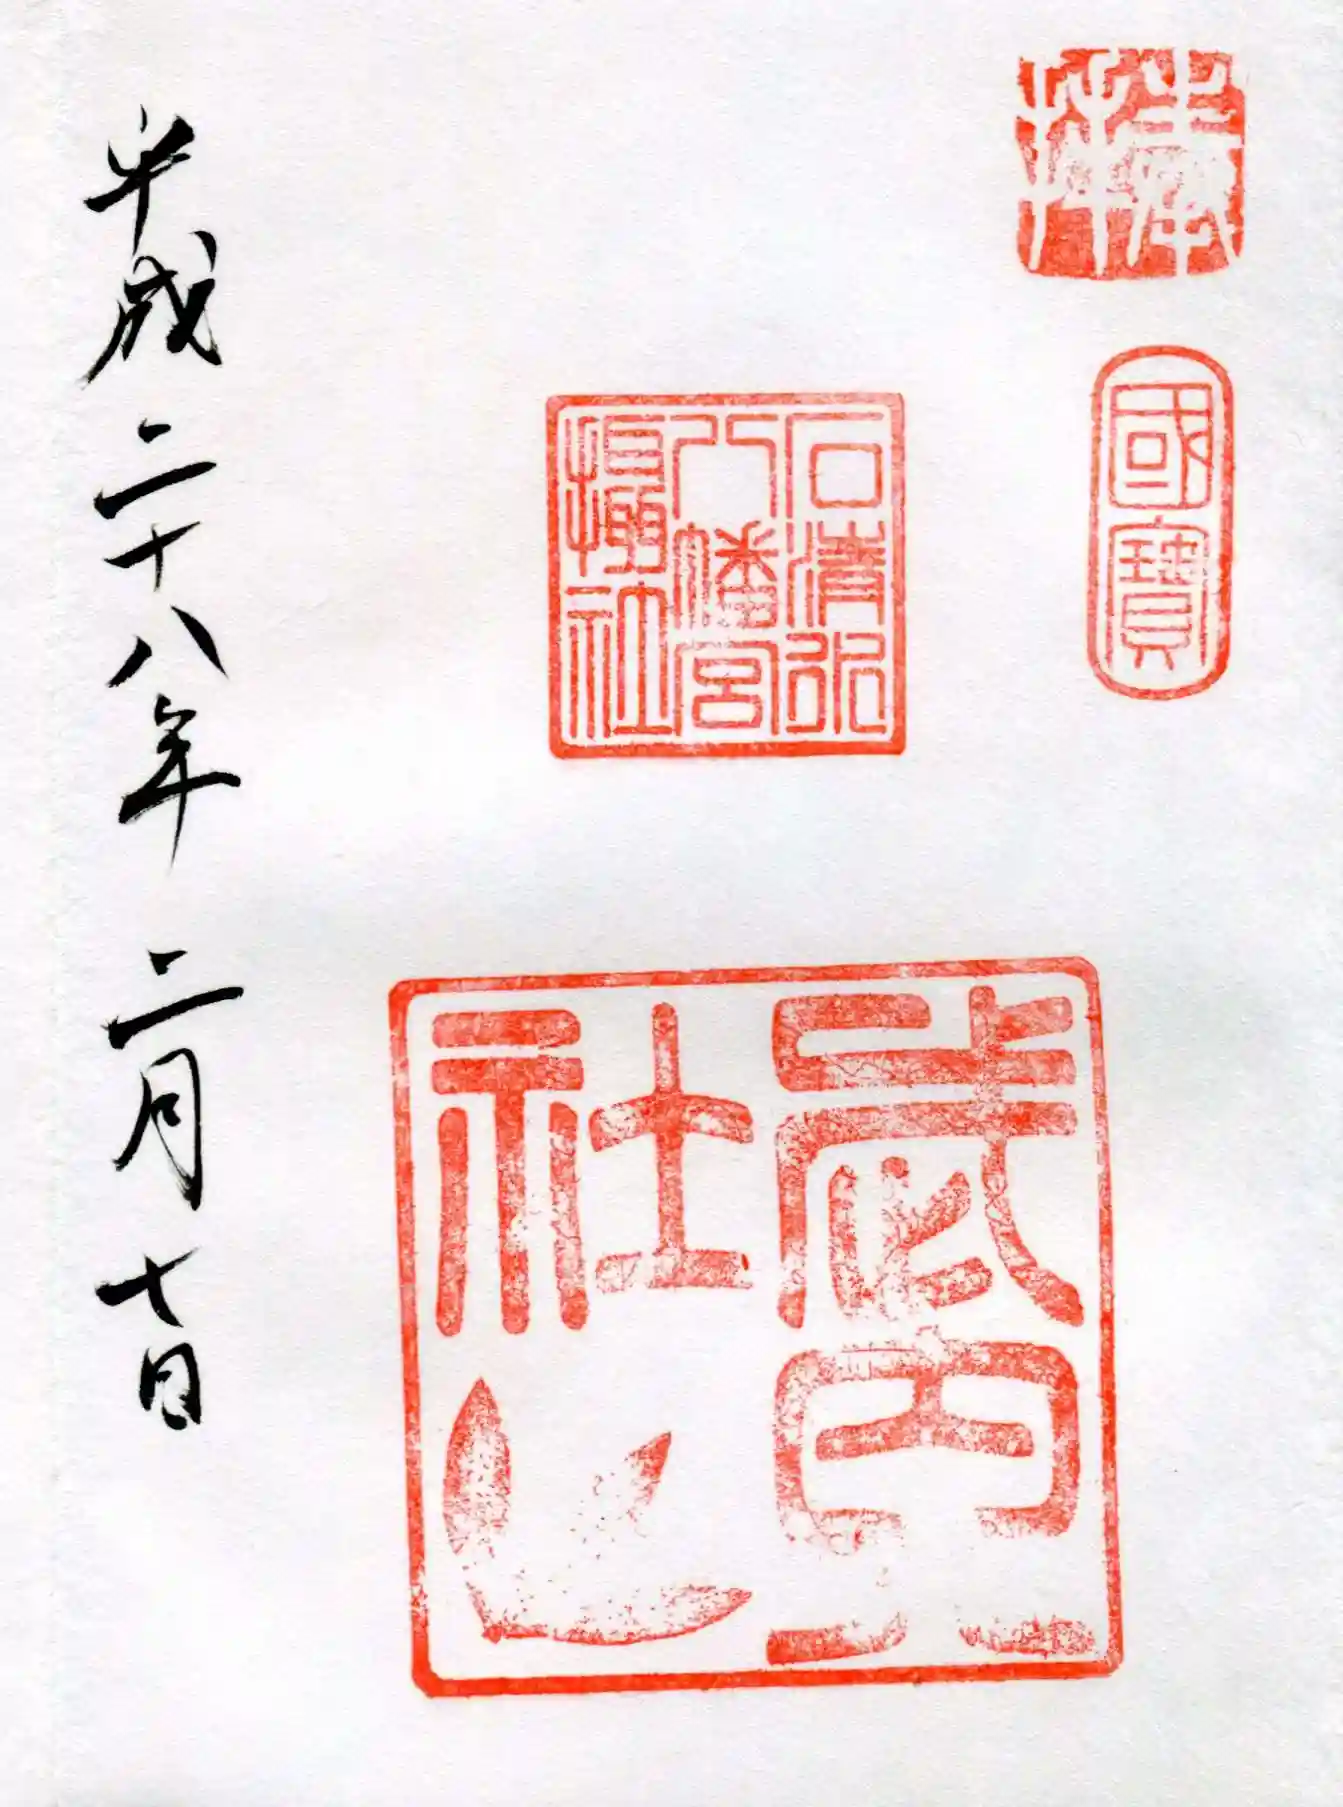 奉拝
國寶
石清水
八幡宮
攝社
武内
社
平成二十八年 二月七日